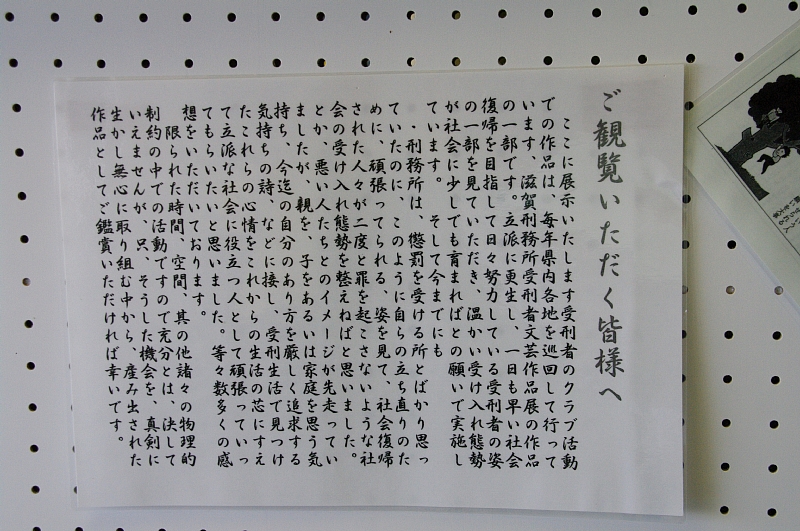 ご観覧いただく皆様へ
ここに展示いたします受刑者のクラブ活動
での作品は、毎年県内各地を巡回して行って
います、滋賀刑務所受刑者文芸作品展の作品
の一部です。立派に更生し、一日も早い社会
復帰を目指して日々努力している受刑者の姿
の一部を見ていただき、温かい受け入れ態勢
が社会に少しでも育まればとの願いで実施し
ています。　そして今までにも
・刑務所は、懲罰を受ける所とばかり思っ
ていたのに、このように自らの立ち直りのた
めに、頑張ってられる、姿を見て、社会復帰
された人々が二度と罪を起こさないような社
会の受け入れ態勢を整えねばと思いました。
とか、悪い人たちとのイメージが先走ってい
ましたが、親を、子をあるいは家庭を思う気
持ち、今迄の自分のあり方を厳しく追求する
気持ちの詩、などに接し、受刑生活で見つけ
たこれらの心情をこれからの生活の芯にすえ
て立派な社会に役立つ人として頑張っていっ
てもらいたいと思いました。等々数多くの感
想をいただいております。
限られた時間、空間、其の他諸々の物理的
制約の中での活動ですので充分とは、決して
いえませんが、只、そうした機会を、真剣に
生かし無心に取り組む中から、産み出された
作品としてご鑑賞いただければ幸いです。